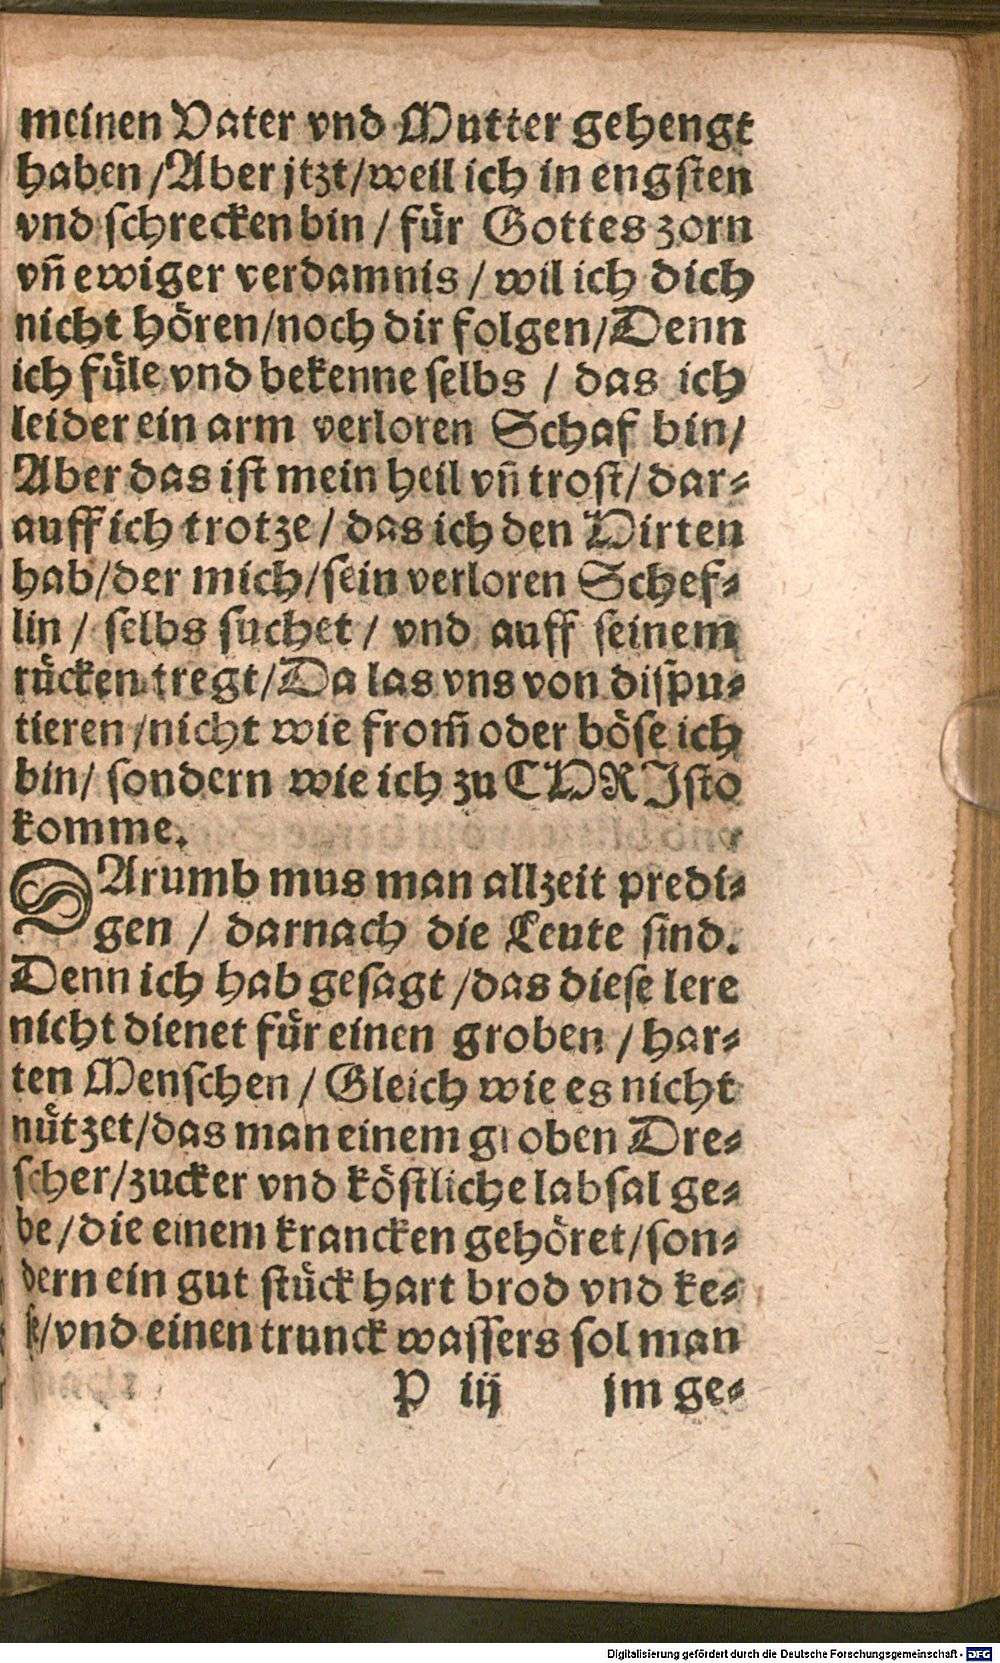 meinen Vater vnd Mutter gehengt
haben /Aber jtzt/weil ich in engsten
vnd schrecken bin / für Gottes zorn
vñ ewiger verdamnis / wil ich dich
nicht hören/noch dir folgen/Denn
ich füle vnd bekenne selbs / das ich
leider ein arm verloren Schaf bin/
Aber das ist mein heil vñ trost/ dar-
auff ich trotze / das ich den Hirten
hab/der mich/sein verloren Schef-
lin / selbs suchet / vnd auff seinem
rücken tregt/Da las vns von dispu-
tieren /nicht wie from̃ oder böse ich
bin/ sondern wie ich zu CHRJsto
komme.
DArumb mus man allzeit predi-
gen / darnach die Leute sind.
Denn ich hab gesagt /das diese lere
nicht dienet für einen groben / har-
ten Menschen / Gleich wie es nicht
nützet/das man einem groben Dre-
scher/zucker vnd köstliche labsal ge-
be /die einem krancken gehöret/son-
dern ein gut stück hart brod vnd ke-
se/vnd einen trunck wassers sol man
P iij jm ge-
Digitalisierung gefördert durch die Deutsche Forschungsgemeinschaft - DFG